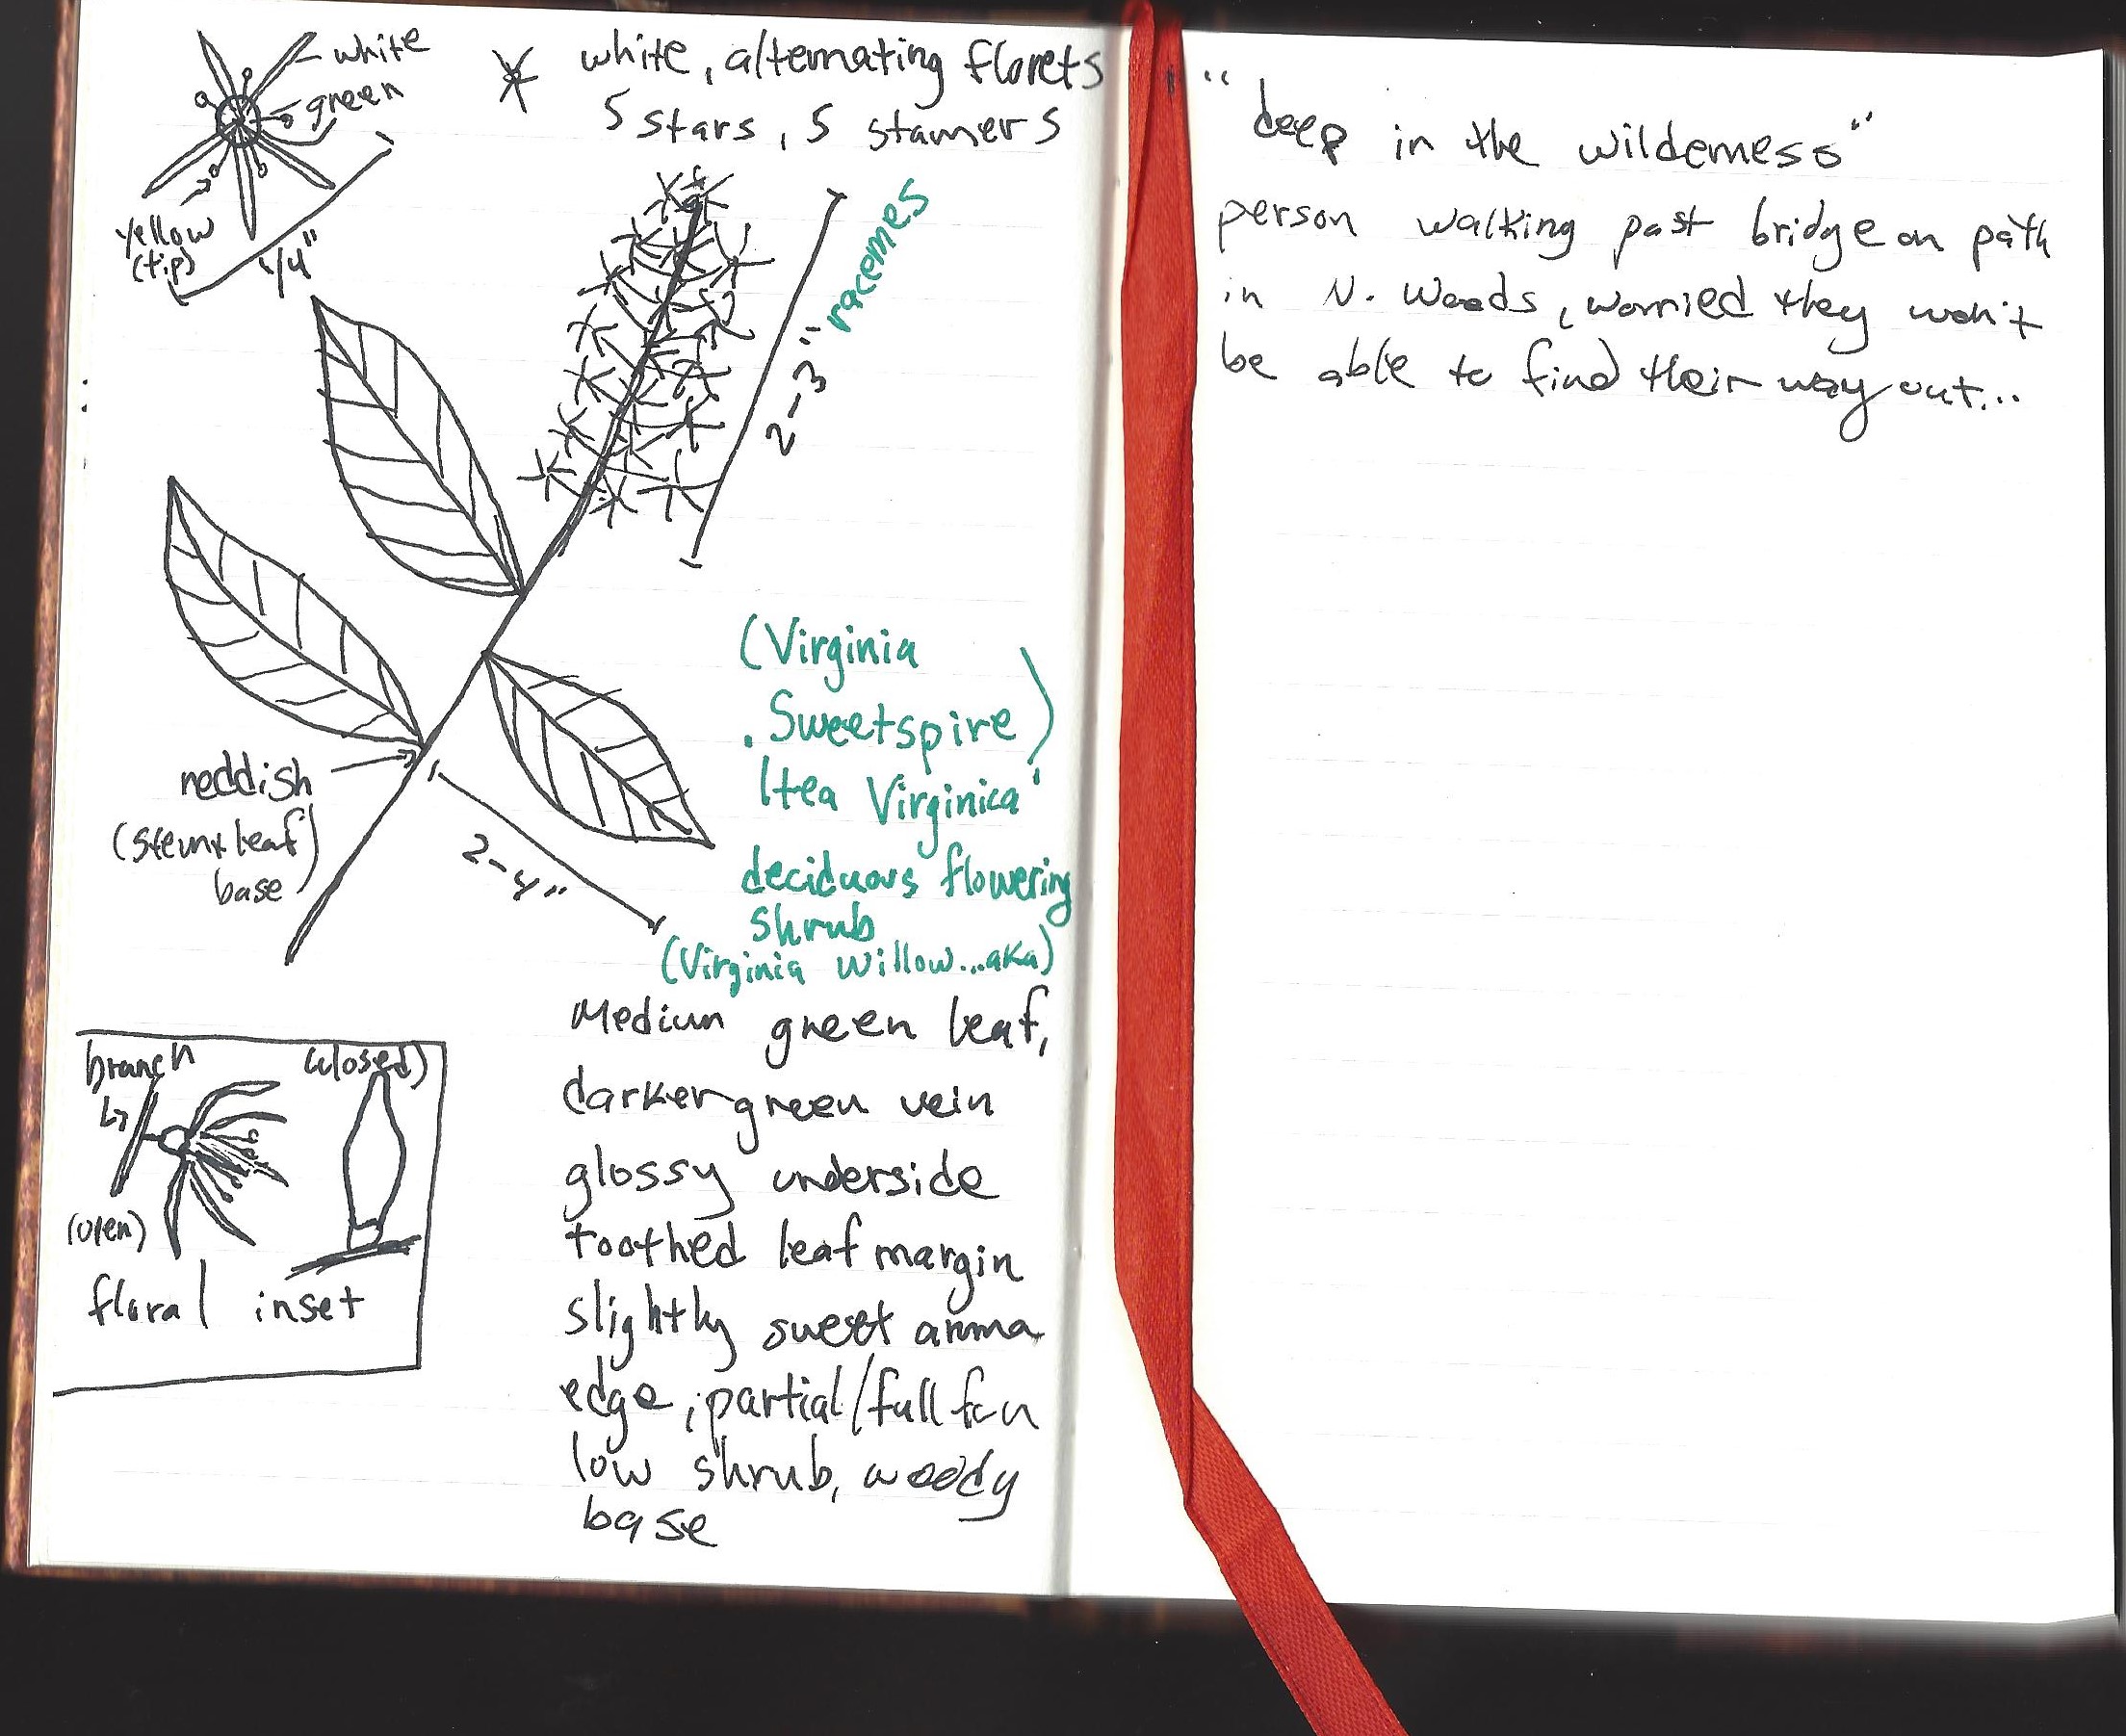 white
green
yellow
(tip)
1/4"
white, alternating florets
5 stars, 5 stamers
2-3" racemes
(Virginia
Sweetspire)
Itea Virginica
deciduous flowering
shrub
(Virginia Willow...aka)
reddish
(stem + leaf)
base
2-4"
branch
(closed)
(open)
floral inset
Medium green leaf,
darker green vein
glossy underside
toothed leaf margin
slightly sweet aroma
edge, partial/full
low shrub, woody
base
"deep in the wilderness"
person walking past bridge on path
in N. Woods, worried they won't
be able to find their way out...